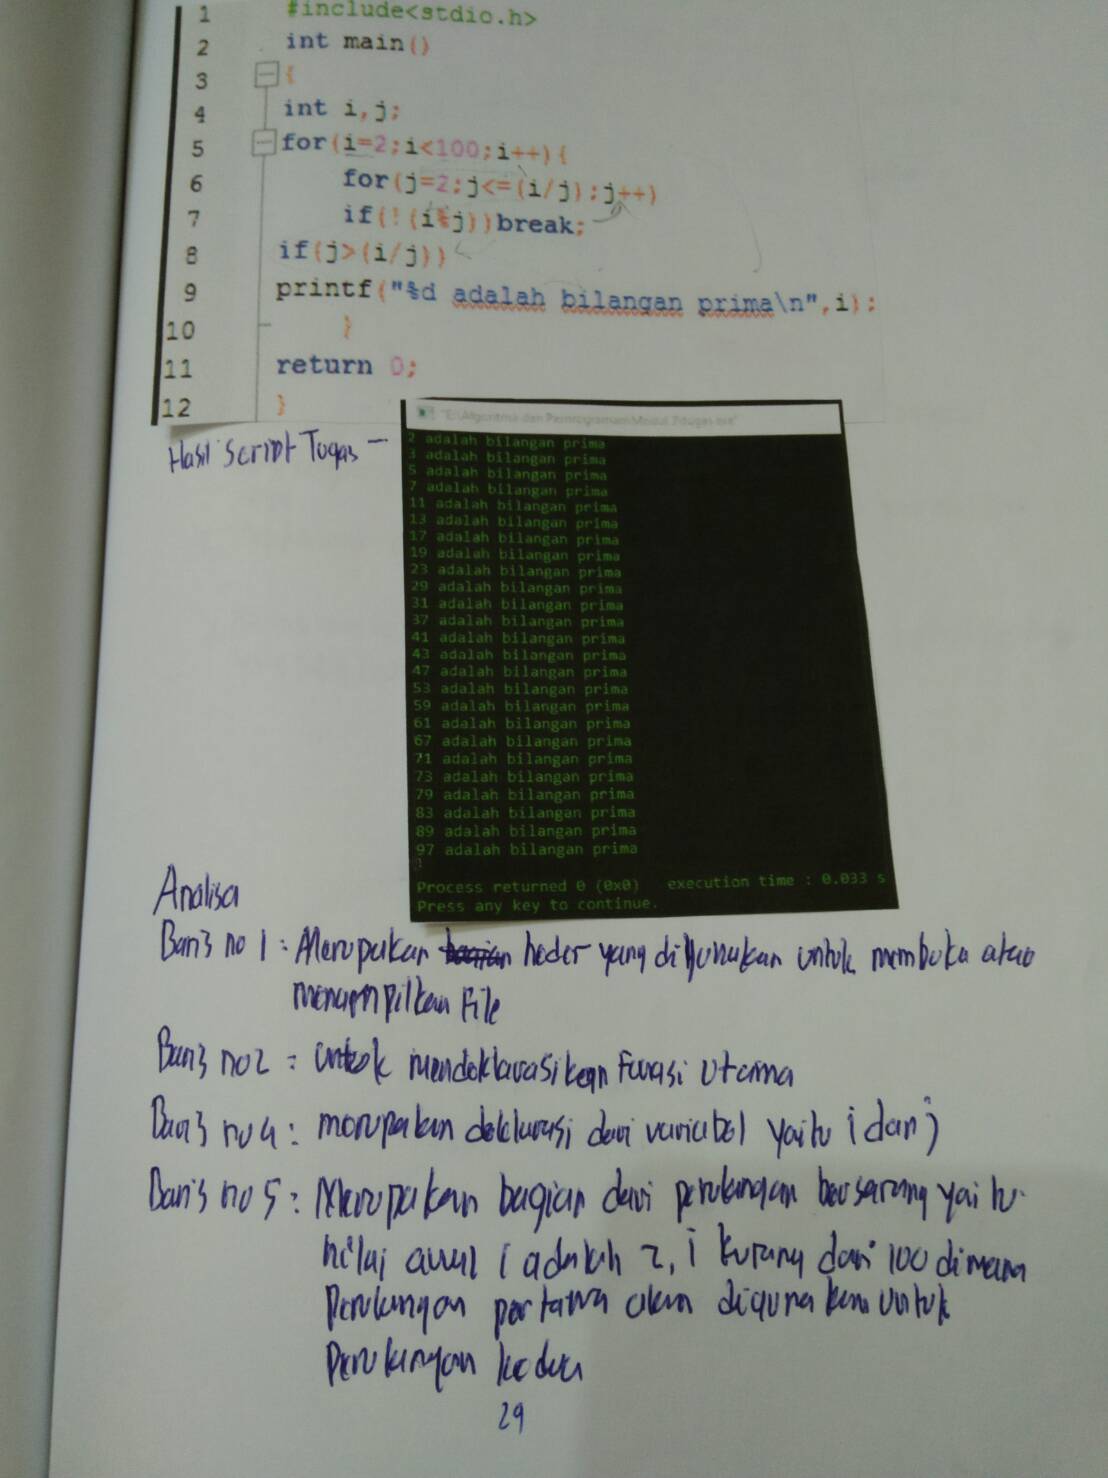 1 #include<stdio.h>
2 int main()
3 {
4 int i,j;
5 for(i=2;i<100;i++){
6 for(j=2;j<=(i/j);j++)
7 if(!(i%j))break;
8 if(j>(i/j))
9 printf("%d adalah bilangan prima\n",i);
10 }
11 return 0;
12 }
Hasil Script Tugas -
"E:\Algoritma dan Pemrograman\Modul 7\tugas.exe"
2 adalah bilangan prima
3 adalah bilangan prima
5 adalah bilangan prima
7 adalah bilangan prima
11 adalah bilangan prima
13 adalah bilangan prima
17 adalah bilangan prima
19 adalah bilangan prima
23 adalah bilangan prima
29 adalah bilangan prima
31 adalah bilangan prima
37 adalah bilangan prima
41 adalah bilangan prima
43 adalah bilangan prima
47 adalah bilangan prima
53 adalah bilangan prima
59 adalah bilangan prima
61 adalah bilangan prima
67 adalah bilangan prima
71 adalah bilangan prima
73 adalah bilangan prima
79 adalah bilangan prima
83 adalah bilangan prima
89 adalah bilangan prima
97 adalah bilangan prima
Process returned 0 (0x0) execution time : 0.033 s
Press any key to continue.
Analisa
Baris no 1 : Merupakan heder yang digunakan untuk membuka atau
menampilkan File
Baris no 2 = untuk mendeklarasikan Fungsi Utama
Baris no 4 : merupakan deklarasi dari variabel yaitu i dan j
Baris no 5 : Merupakan bagian dari perulangan bersarang yaitu
nilai awal i adalah 2, i kurang dari 100 dimana
Perulangan pertama akan digunakan untuk
Perulangan kedua
29